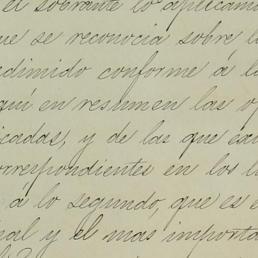 el sobrante lo aplicamo
ue se reconocia sobre l
edimido conforme á l
quí en resumen las o
icadas, y de las que
orrespondientes en los l
á lo segundo, que es e
pal y el mas importa